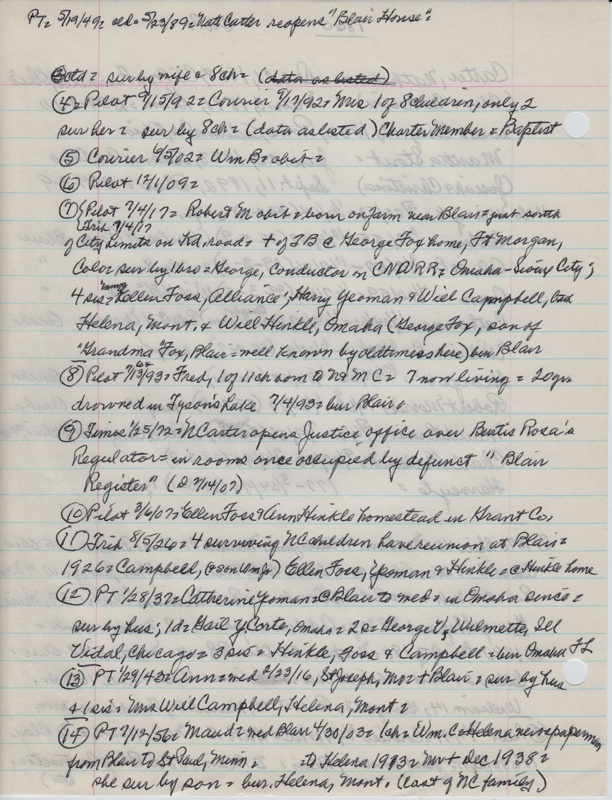 PT= 5/19/49= old= 5/23/89= Nate Carter reopens "Blair House"=
③ otd= sur by wife & 8ch= (data as listed)
④= Pilot 9/15/92= Courier 9/17/92= Mrs 1 of 8 children, only 2
sur her= sur by 8ch= (data as listed) Charter Member= Baptist
⑤ Courier 6/5/02= Wm B= obit=
⑥ Pilot 12/1/09=
⑦ {Pilot 7/4/17= Robert M obit= born on farm near Blair= just south
{Trib 7/4/17
of City Limits on Rd. road= + of TB @ George Fox home, Ft Morgan,
Color= sur by 1 bro= George, Conductor on CNDRR= Omaha-Sioux City;
4 sis= Ellen Foss, Alliance; Harry Yeoman & Will Campbell, both
Helena, Mont. & Will Hinkle, Omaha (George Fox, son of
"Grandma" Fox, Blair= well known by oldtimers here) bur Blair
⑧ Pilot 7/13/93= Fred, 1 of 11 ch born to N & M C= 7 now living= 20 yrs
drowned in Tyson's Lake 7/4/93= bur Blair=
⑨ Times 1/25/72= N Carter opens Justice office over Burtis Rosa's
Regulator= in rooms once occupied by defunct "Blair
Register" (D 7/14/07)
⑩ Pilot 3/6/07= Ellen Foss & Ann Hinkle homestead in Grant Co,
⑪ Trib 8/5/26= 4 surviving NC children have reunion at Blair=
1926= Campbell, (& son Wm Jr) Ellen Foss, Yoman & Hinkle= @ Hinkle home
⑫ PT 1/28/37= Catherine Yoman= @ Blair to med= in Omaha since=
sur by hus; 1d= Gail Y. Corte, Omaha= 2s= George V, Wilmette, Ill
Vidal, Chicago= 3 sis= Hinkle, Foss & Campbell= bur Omaha FL
⑬ PT 1/29/43= Ann= wed 2/23/16, St Joseph, Mo= + Blair= sur by hus
& 1 sis= Mrs Will Campbell, Helena, Mont=
⑭ PT 7/12/56= Maud= wed Blair 4/30/03= 1ch= Wm. C= Helena newspaperman
from Blair to St Paul, Minn= to Helena 1913= Mr + Dec 1938=
she sur by son= bur. Helena, Mont. (last of NC family)